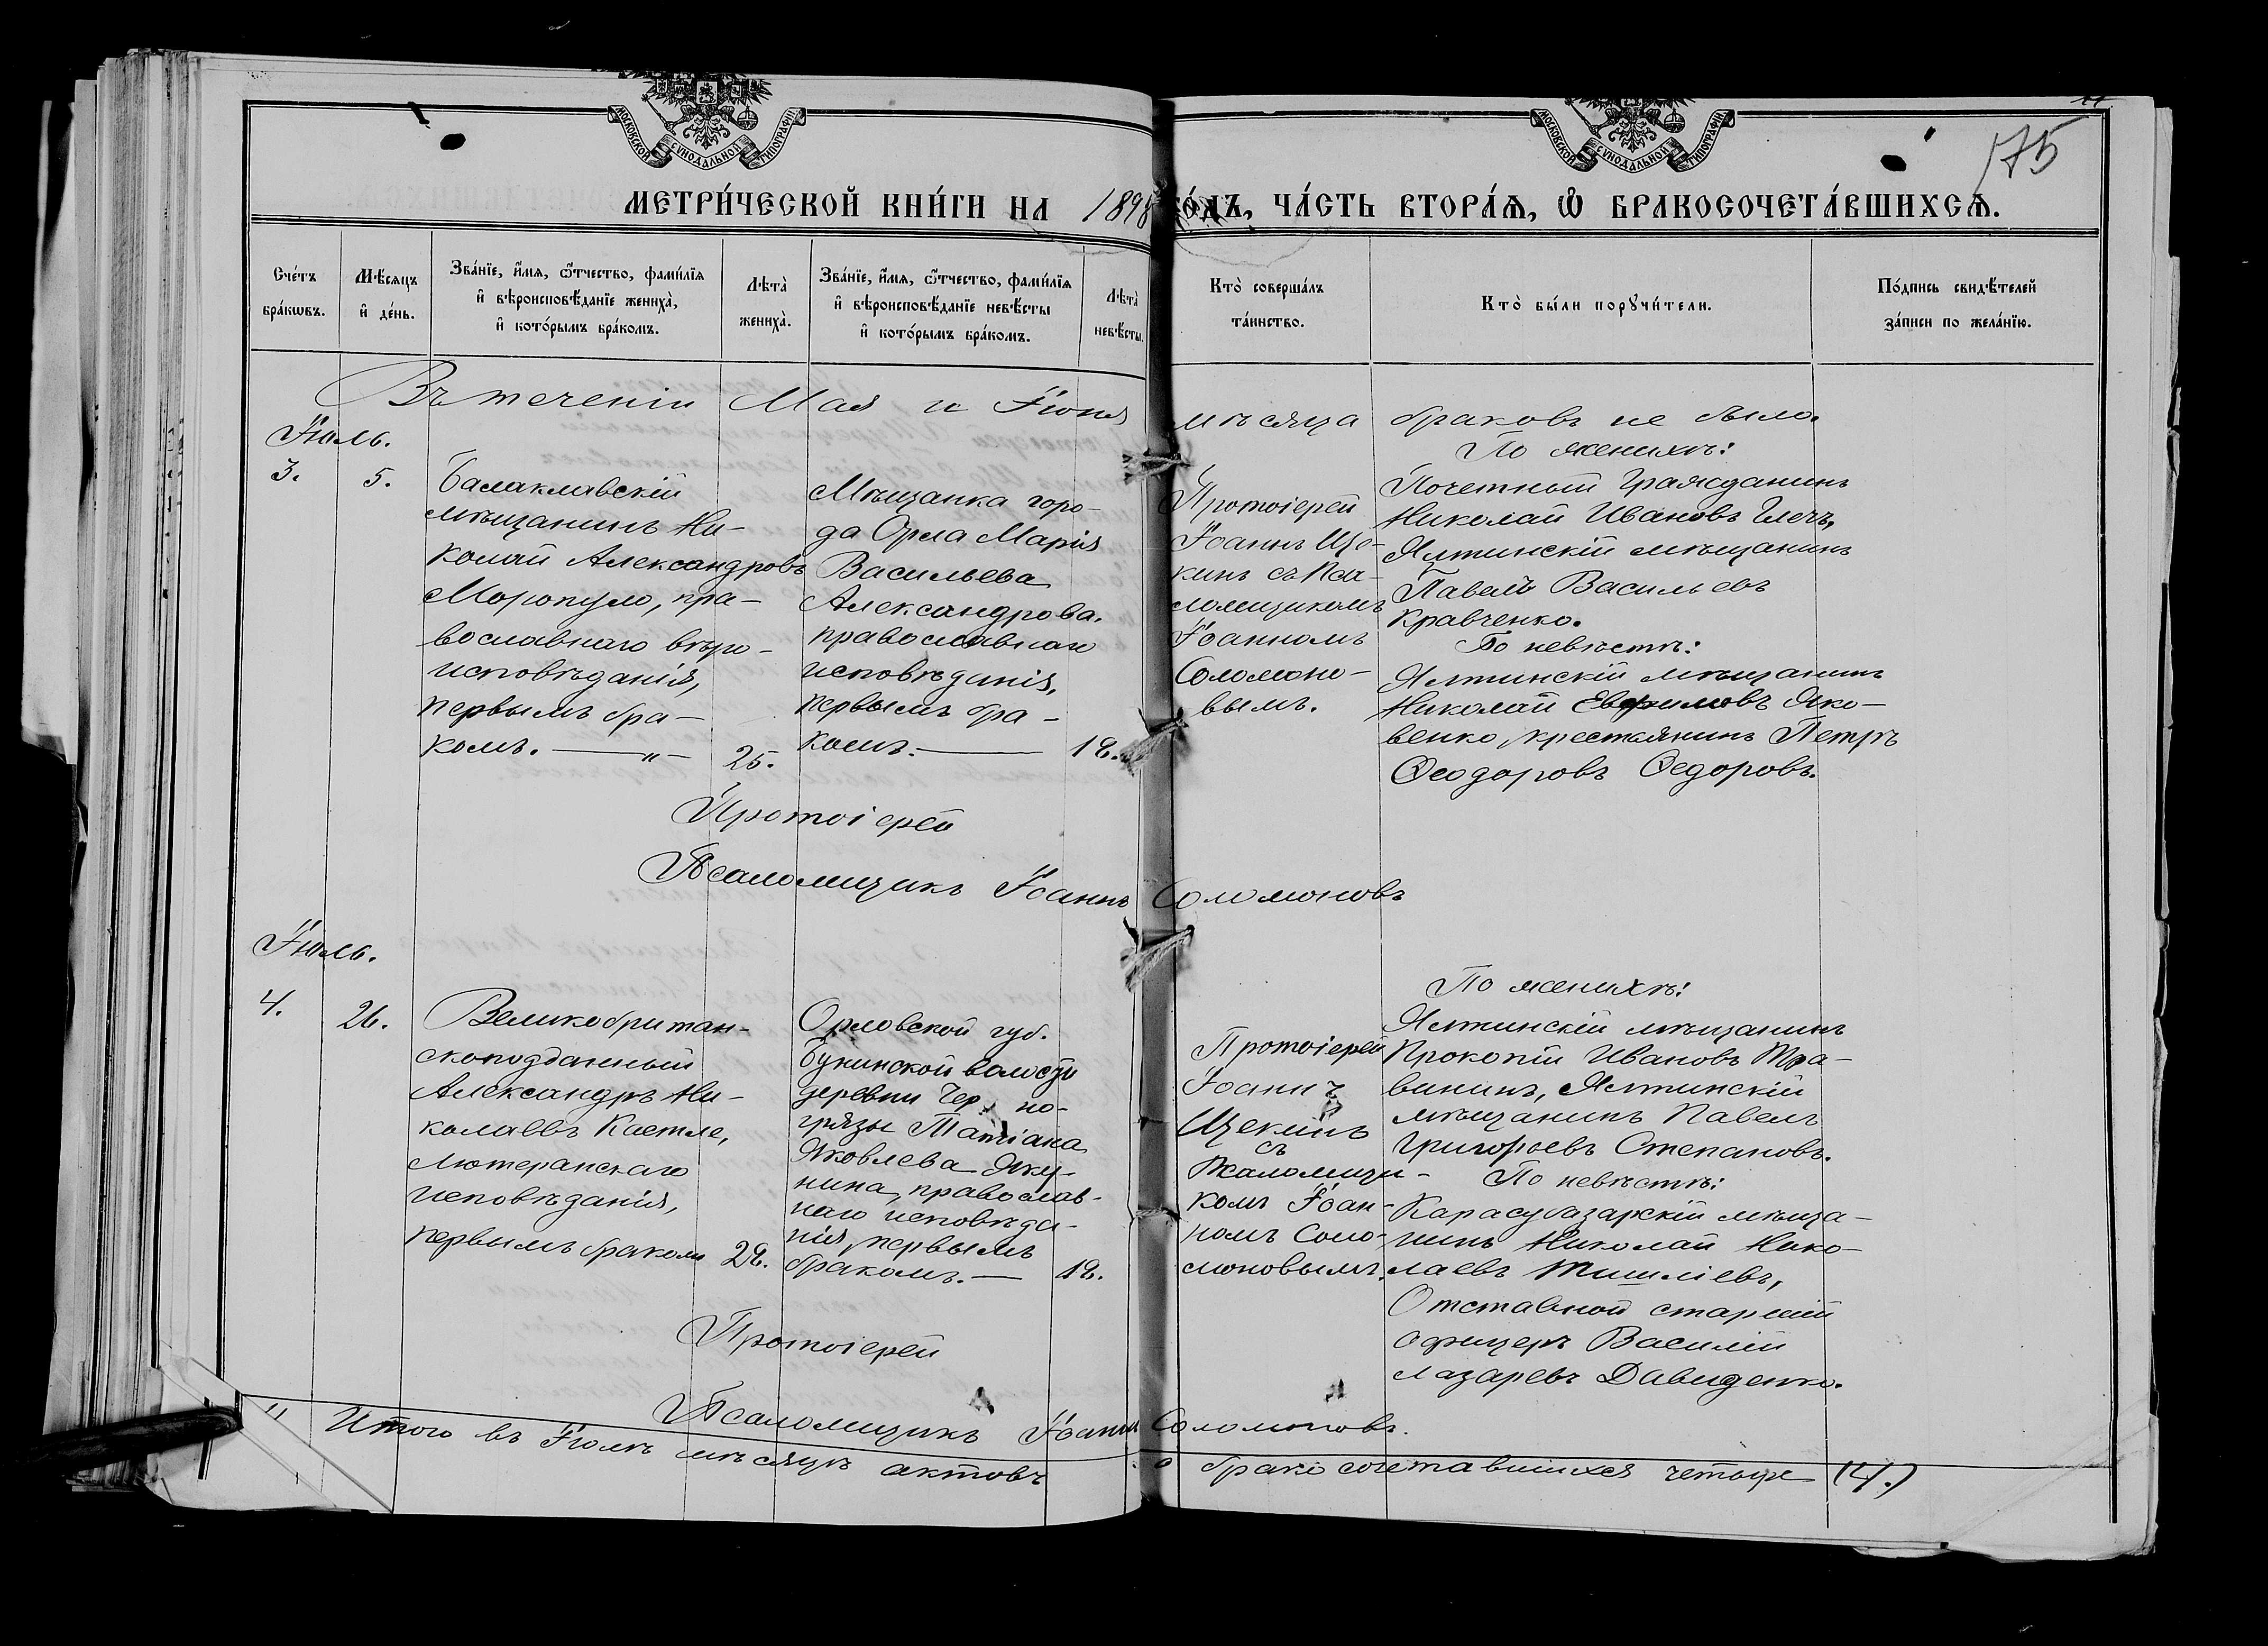 МОСКОВСКОЙ СѴНОДАЛЬНОЙ ТИПОГРАФІИ
МОСКОВСКОЙ СѴНОДАЛЬНОЙ ТИПОГРАФІИ
175
МЕТРИ́ЧЕСКОЙ КНИ́ГИ НА 1898 ГО́ДЪ, ЧА́СТЬ ВТОРА́Ѧ, Ѽ БРАКОСОЧЕТА́ВШИХСѦ.
Сче́тъ
бра́кѡвъ.
Мѣ́сяцъ
и҆ де́нь.
Зва́нїе, и҆́мѧ, ѻ҆́тчество, фами́лїѧ
и҆ вѣроисповѣ́данїе жениха̀,
и҆ кото́рымъ бра́комъ.
Лѣта̀
жениха̀.
Зва́нїе, и҆́мѧ, ѻ҆́тчество, фами́лїѧ
и҆ вѣроисповѣ́данїе невѣ́сты
и҆ кото́рымъ бра́комъ.
Лѣта̀
невѣ́сты.
Кто̀ соверша́лъ
та́инство.
Кто̀ бы́ли порꙋчи́тели.
По́дпись свидѣ́телей
за́писи по жела́нїю.
Въ теченіи Мая и Іюня мѣсяца браковъ не было.
Іюль.
3.
5.
Балаклавскій
мѣщанинъ Ни-
колай Александровъ
Моропуло, пра-
вославнаго вѣро-
исповѣданія,
первымъ бра-
комъ. — „ —
25.
Мѣщанка горо-
да Орла Марія
Васильева
Александрова.
православнаго
исповѣданія,
первымъ бра-
комъ. —
18.
Протоіерей
Іоаннъ Ще-
кинъ съ Пса-
ломщикомъ
Іоанномъ
Соломоно-
вымъ.
По женихѣ:
Почетный Гражданинъ
Николай Ивановъ
Ялтинскій мѣщанинъ
Павелъ Васильевъ
Кравченко.
По невѣстѣ:
Ялтинскій мѣщанинъ
Николай Евфимовъ Яко-
венко, крестьянинъ Петръ
Ѳеодоровъ Ѳедоровъ.
Протоіерей
Псаломщикъ Іоаннъ Соломоновъ
Іюль.
4.
26.
Великобритан-
скоподданный
Александръ Ни-
колаевъ Кастле,
Лютеранскаго
исповѣданія,
первымъ бракомъ
28.
Орловской губ.
Букинской волости
деревни Чер но-
грязы Татіана
Яковлева Яку-
нина, православ-
наго исповѣда-
нія, первымъ
бракомъ. —
18.
Протоіерей
Іоаннъ
Щекинъ
съ
Псаломщи-
комъ Іоан-
номъ Соло-
моновымъ.
По женихѣ:
Ялтинскій мѣщанинъ
Прокопій Ивановъ Тра-
вининъ, Ялтинскій
мѣщанинъ Павелъ
Григорьевъ Степановъ.
По невѣстѣ:
Карасубазарскій мѣща-
нинъ Николай Нико-
лаевъ
Отставной старшій
офицеръ Василій
Лазаревъ Давиденко.
Протоіерей
Псаломщикъ Іоаннъ Соломоновъ.
Итого въ Іюлѣ мѣсяцѣ актовъ о бракосочетавшихся четыре (4.)